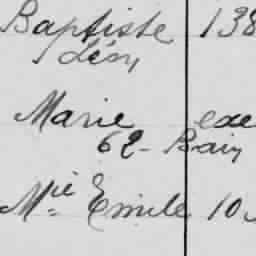 Baptiste 138
Léon
Marie exe
62- Bain
Mie Emile 10